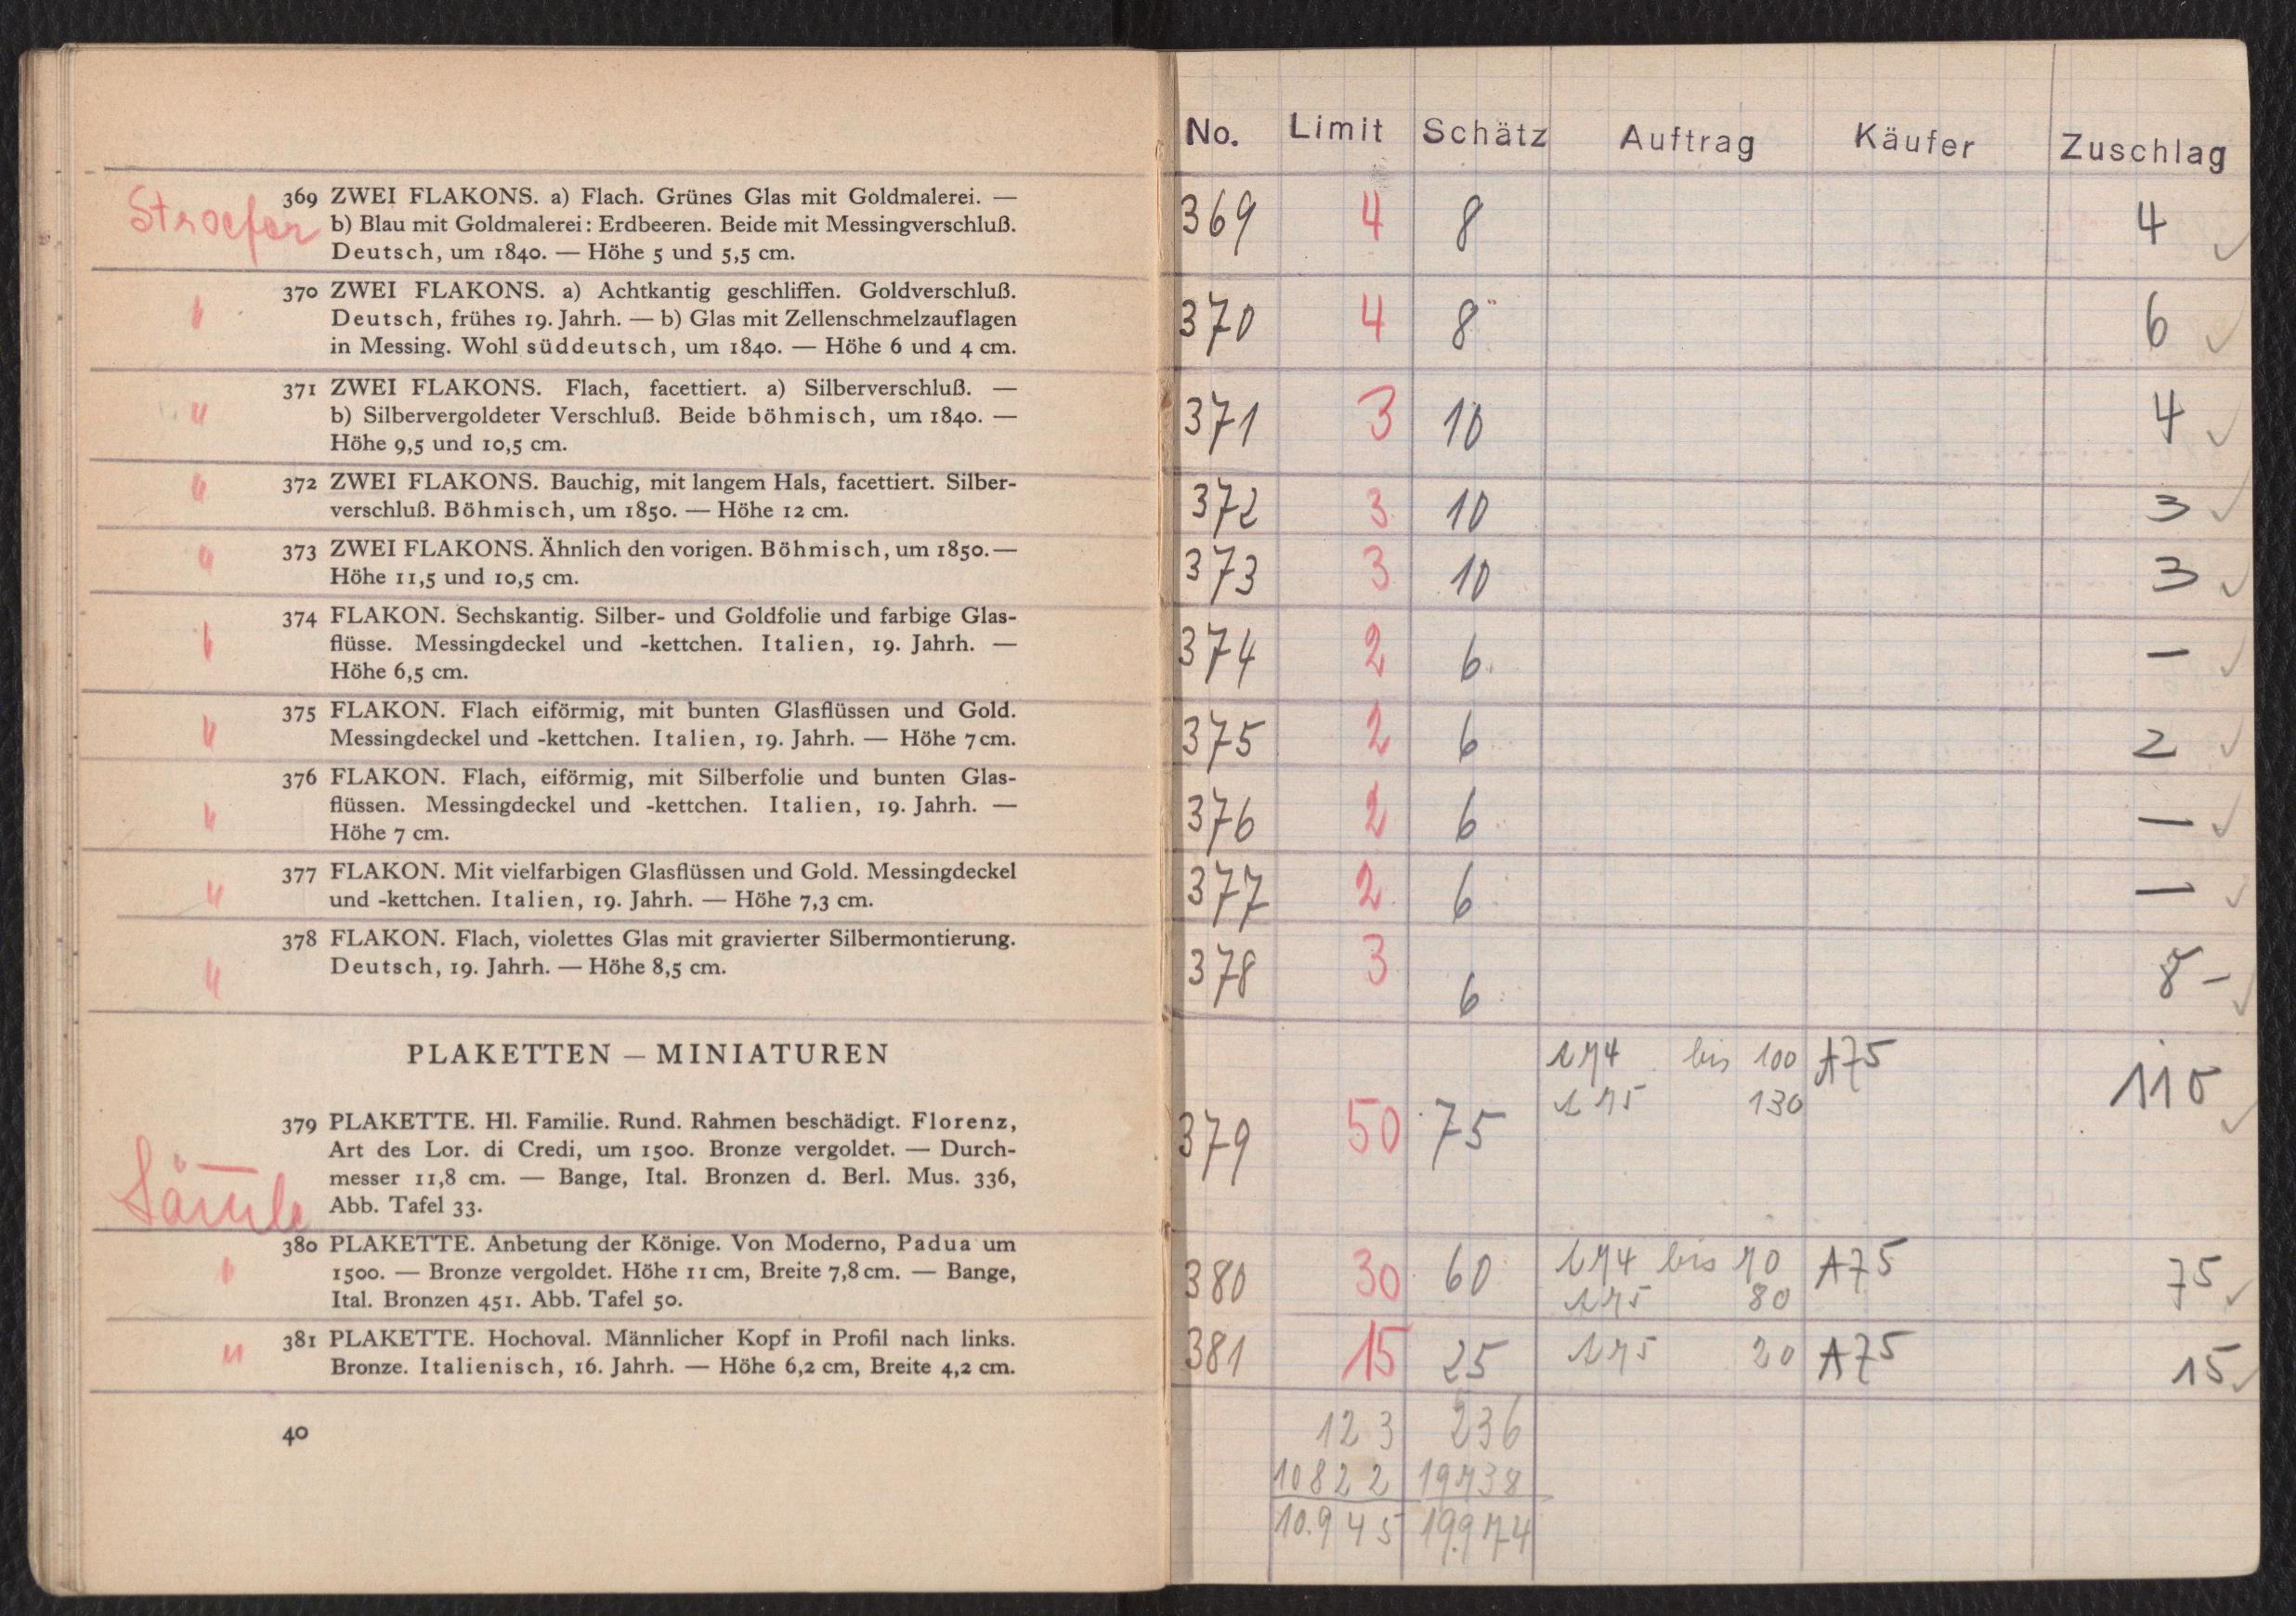 Stroefer
369 ZWEI FLAKONS. a) Flach. Grünes Glas mit Goldmalerei. —
b) Blau mit Goldmalerei: Erdbeeren. Beide mit Messingverschluß.
Deutsch, um 1840. — Höhe 5 und 5,5 cm.
" 370 ZWEI FLAKONS. a) Achtkantig geschliffen. Goldverschluß.
Deutsch, frühes 19. Jahrh. — b) Glas mit Zellenschmelzauflagen
in Messing. Wohl süddeutsch, um 1840. — Höhe 6 und 4 cm.
" 371 ZWEI FLAKONS. Flach, facettiert. a) Silberverschluß. —
b) Silbervergoldeter Verschluß. Beide böhmisch, um 1840. —
Höhe 9,5 und 10,5 cm.
" 372 ZWEI FLAKONS. Bauchig, mit langem Hals, facettiert. Silber-
verschluß. Böhmisch, um 1850. — Höhe 12 cm.
" 373 ZWEI FLAKONS. Ähnlich den vorigen. Böhmisch, um 1850. —
Höhe 11,5 und 10,5 cm.
" 374 FLAKON. Sechskantig. Silber- und Goldfolie und farbige Glas-
flüsse. Messingdeckel und -kettchen. Italien, 19. Jahrh. —
Höhe 6,5 cm.
" 375 FLAKON. Flach eiförmig, mit bunten Glasflüssen und Gold.
Messingdeckel und -kettchen. Italien, 19. Jahrh. — Höhe 7 cm.
" 376 FLAKON. Flach, eiförmig, mit Silberfolie und bunten Glas-
flüssen. Messingdeckel und -kettchen. Italien, 19. Jahrh. —
Höhe 7 cm.
" 377 FLAKON. Mit vielfarbigen Glasflüssen und Gold. Messingdeckel
und -kettchen. Italien, 19. Jahrh. — Höhe 7,3 cm.
" 378 FLAKON. Flach, violettes Glas mit gravierter Silbermontierung.
Deutsch, 19. Jahrh. — Höhe 8,5 cm.
PLAKETTEN — MINIATUREN
379 PLAKETTE. Hl. Familie. Rund. Rahmen beschädigt. Florenz,
Art des Lor. di Credi, um 1500. Bronze vergoldet. — Durch-
messer 11,8 cm. — Bange, Ital. Bronzen d. Berl. Mus. 336,
Abb. Tafel 33.
" 380 PLAKETTE. Anbetung der Könige. Von Moderno, Padua um
1500. — Bronze vergoldet. Höhe 11 cm, Breite 7,8 cm. — Bange,
Ital. Bronzen 451. Abb. Tafel 50.
" 381 PLAKETTE. Hochoval. Männlicher Kopf in Profil nach links.
Bronze. Italienisch, 16. Jahrh. — Höhe 6,2 cm, Breite 4,2 cm.
40
No. Limit Schätz Auftrag Käufer Zuschlag
369 4 8 4 ✓
370 4 8 6 ✓
371 3 10 4 ✓
372 3 10 3 ✓
373 3 10 3 ✓
374 2 6 — ✓
375 2 6 2 ✓
376 2 6 — ✓
377 2 6 — ✓
378 3 6 8 — ✓
bis 100 A75
130
379 50 75 110 ✓
380 30 60 bis 70 A75 75 ✓
80
381 15 25 20 A75 15 ✓
123 236
10822 19738
10.945 19.974